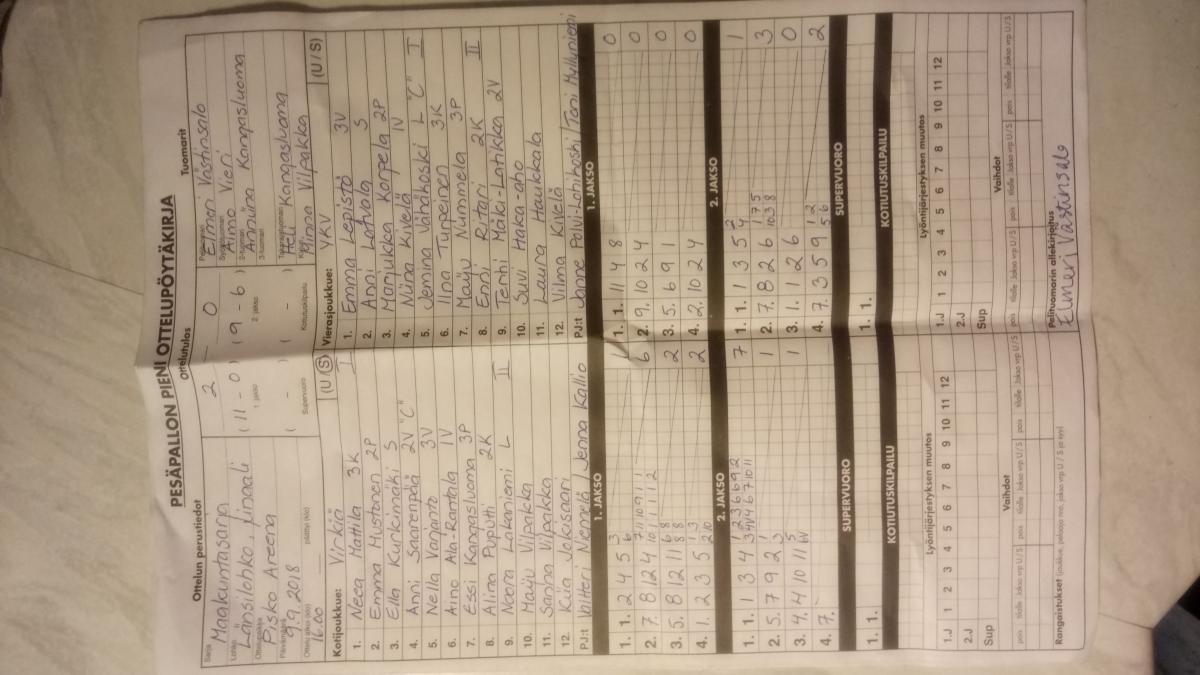 PESÄPALLON PIENI OTTELUPÖYTÄKIRJA
Ottelun perustiedot
Ottelutulos
Tuomarit
Sarja Maakuntasarja
Lohko Länsilohko, finaali
Ottelupaikka Pisko Areena
Päivämäärä 9.9.2018
Ottelu alkoi (klo) 16.00 päättyi (klo)
2 - 0
(11 - 0) (9 - 6)
1. jakso 2. jakso
( - ) ( - )
Supervuoro Kotiutuskilpailu
Pelituomari Elmeri Västinsalo
Syöttötuomari Aimo Vieri
2-tuomari Anniina Kangasluoma
3-tuomari
Takarajatuomari Heli Kangasluoma
Kirjuri Minna Vilpakka
Kotijoukkue: Virkiä (U/S)
1. Neea Mattila 3K I
2. Emma Mustonen 2P
3. Ella Kurkimäki S
4. Anni Saarenpää 2V "C"
5. Nella Varjanto 3V
6. Aino Ala-Rantala 1V
7. Essi Kangasluoma 3P
8. Alina Puputti 2K
9. Noora Lakaniemi L II
10. Maiju Vilpakka
11. Sanna Vilpakka
12. Kuia Jokisaari
PJ:t Valtteri Niemelä / Jenna Kallio
Vierasjoukkue: YKV (U/S)
1. Emma Lepistö 3V
2. Anni Latvala S
3. Marjukka Korpela 2P
4. Niina Kivelä 1V
5. Jemina Vähäkoski L "C" I
6. Iina Turpeinen 3K
7. Maiju Nummela 3P
8. Enni Ritari 2K II
9. Terhi Mäki-Latikka 2V
10. Suvi Haka-aho
11. Laura Haukkala
12. Vilma Kivelä
PJ:t Janne Polvi-Lohikoski / Toni Myllyniemi
1. JAKSO
1. 1. 2 4 5 3 6 1
2. 7. 8 12 4 7 11 10 9 1 10 11 1 1 12 6
3. 5. 8 12 11 6 8 8 8 2
4. 1. 2 3 5 1 3 2 10 2
2. JAKSO
1. 1. 1 3 4 1 2 3 6 6 9 2 7
2. 5. 7 9 2 1 3 1
3. 4. 4 10 11 5 1
4. 7.
SUPERVUORO
1. 1.
KOTIUTUSKILPAILU
1. JAKSO
1. 1. 11 4 8 0
2. 9. 10 2 4 0
3. 5. 6 9 1 0
4. 2. 10 2 4 0
2. JAKSO
1. 1. 1 3 5 2 4 1
2. 7. 8 2 6 1 7 5 10 3 8 3
3. 1. 1 2 6 0
4. 7. 3 5 9 1 2 5 6 2
SUPERVUORO
1. 1.
KOTIUTUSKILPAILU
Lyöntijärjestyksen muutos
1 2 3 4 5 6 7 8 9 10 11 12
1.J
2.J
Sup
Vaihdot
pois tilalle Jakso vrp U/S pois tilalle Jakso vrp U/S
Lyöntijärjestyksen muutos
1 2 3 4 5 6 7 8 9 10 11 12
1.J
2.J
Sup
Vaihdot
pois tilalle Jakso vrp U/S pois tilalle Jakso vrp U/S
Rangaistukset (joukkue, pelaaja nro, jakso vrp U / S ja syy)
Pelituomarin allekirjoitus
Elmeri Västinsalo